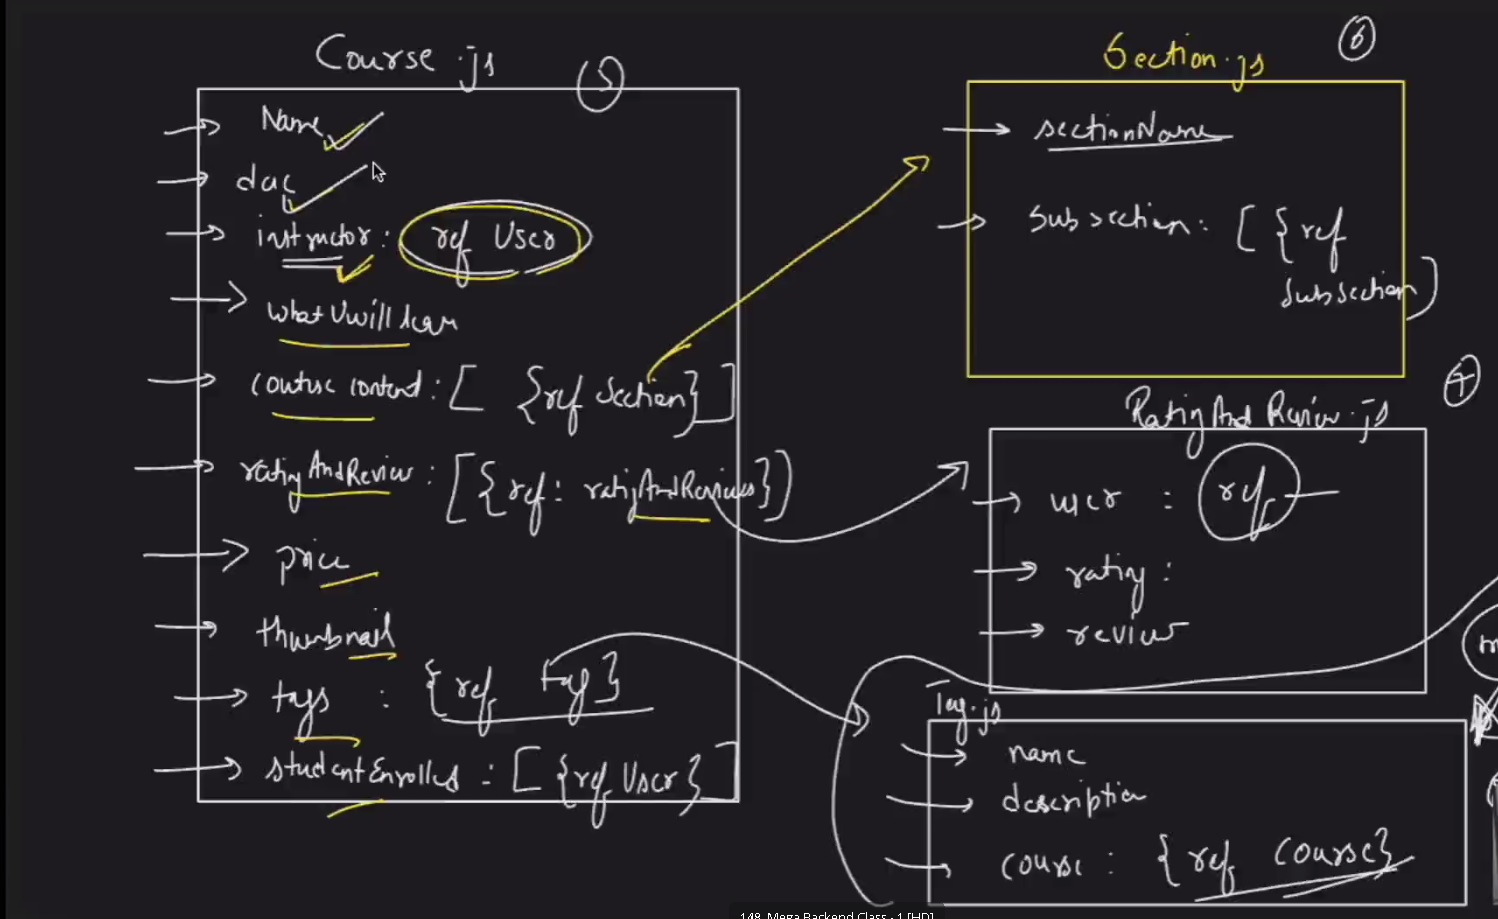 Course.js
5
Name
desc
instructor: ref User
what U will learn
course content: [ {ref Section} ]
ratingAndReview: [{ref: ratingAndReviews}]
price
thumbnail
tags : {ref Tag}
studentEnrolled : [{ref User}]
Section.js
6
sectionName
Subsection: [ {ref
Subsection]
7
RatingAndReview.js
user : ref
rating :
review
Tag.js
name
description
course : {ref course}
148. Mega Backend Class - 1 [HD]